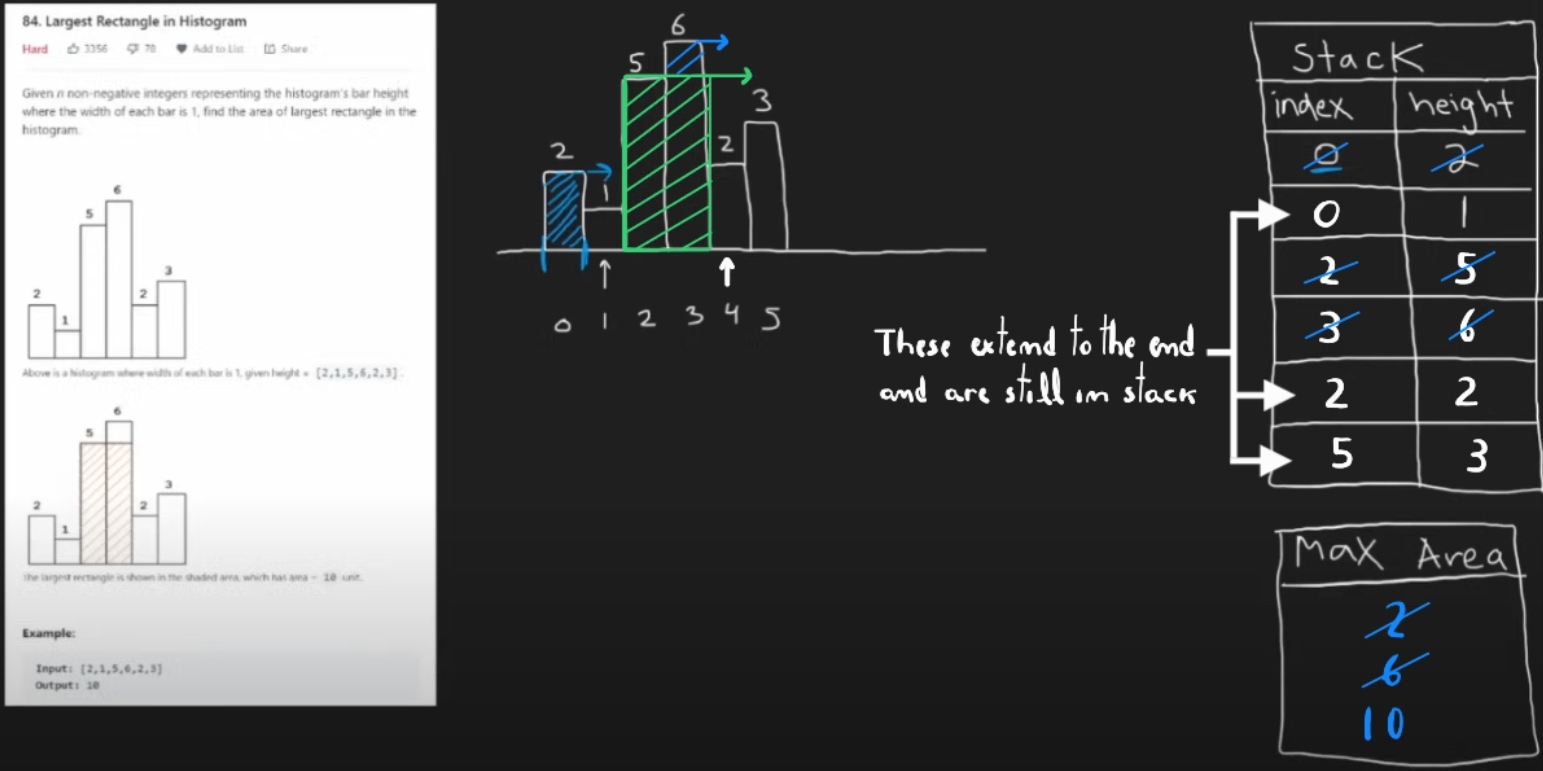 84. Largest Rectangle in Histogram
Hard 3356 78 Add to List Share
Given n non-negative integers representing the histogram's bar height
where the width of each bar is 1, find the area of largest rectangle in the
histogram.
6
5
3
2
2
1
Above is a histogram where width of each bar is 1, given height = [2,1,5,6,2,3].
6
5
3
2
2
1
The largest rectangle is shown in the shaded area, which has area = 10 unit.
Example:
Input: [2,1,5,6,2,3]
Output: 10
6
5
3
2
2
1
0 1 2 3 4 5
These extend to the end
and are still in stack
Stack
index height
0 2
0 1
2 5
3 6
2 2
5 3
Max Area
2
6
10